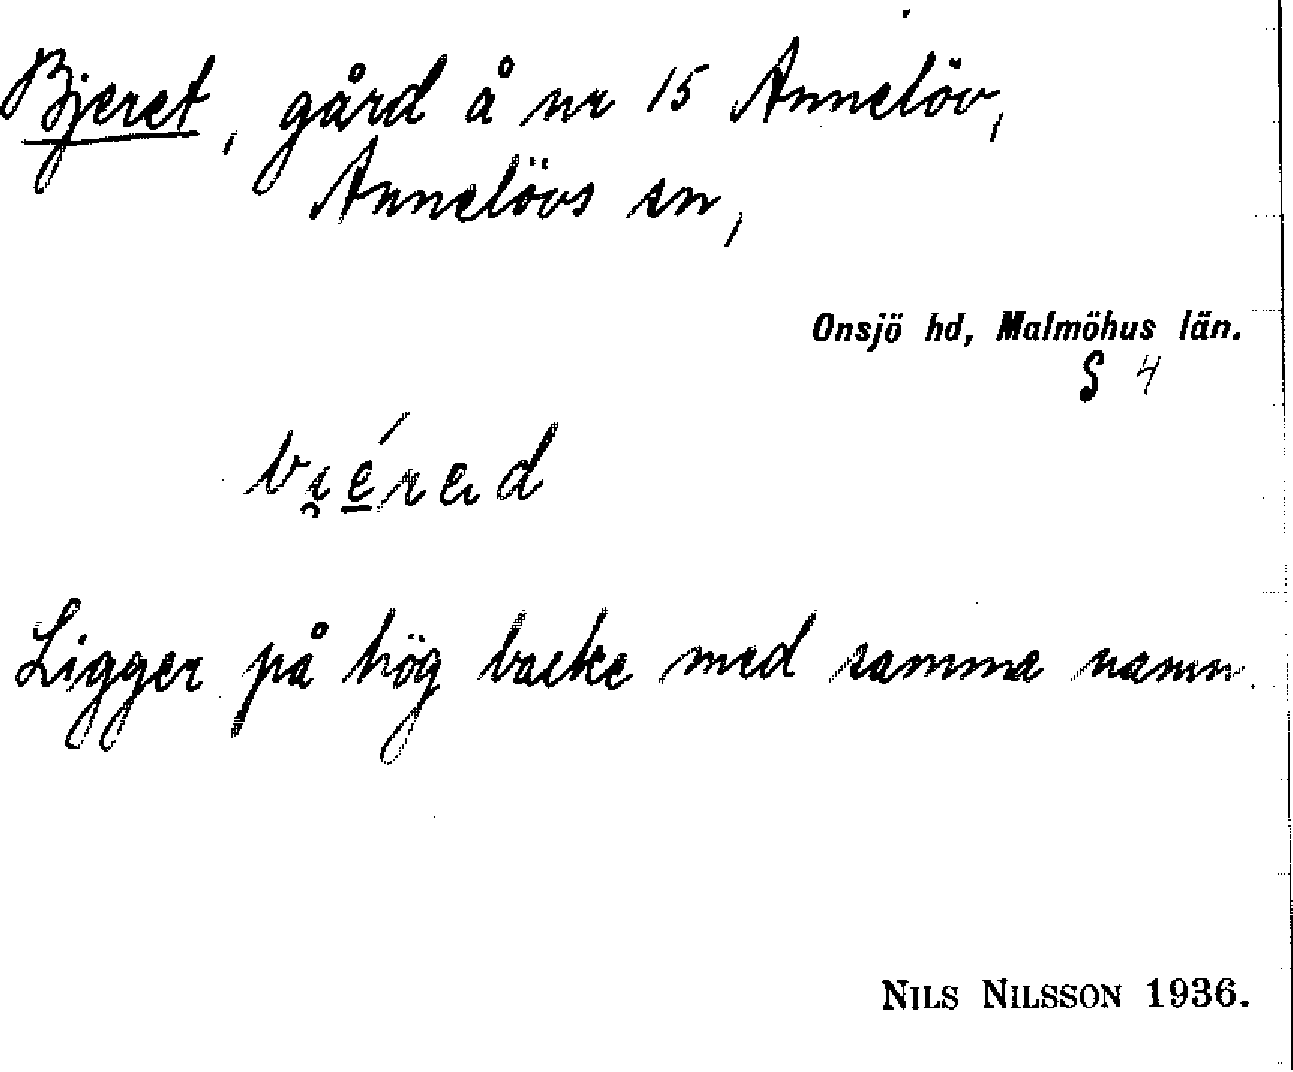 Bjeret, gård å nr 15 Annelöv,
Annelövs sn,
Onsjö hd, Malmöhus län.
S 4
Ligger på hög backe med samma namn.
NILS NILSSON 1936.